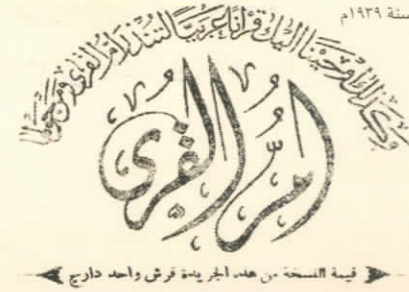 سنة ١٩٣٩م
وكذلك أوحينا إليك قرآناً عربياً لتنذر أم القرى ومن حولها
أم القرى
قيمة النسخة من هذه الجريدة قرش واحد دارج